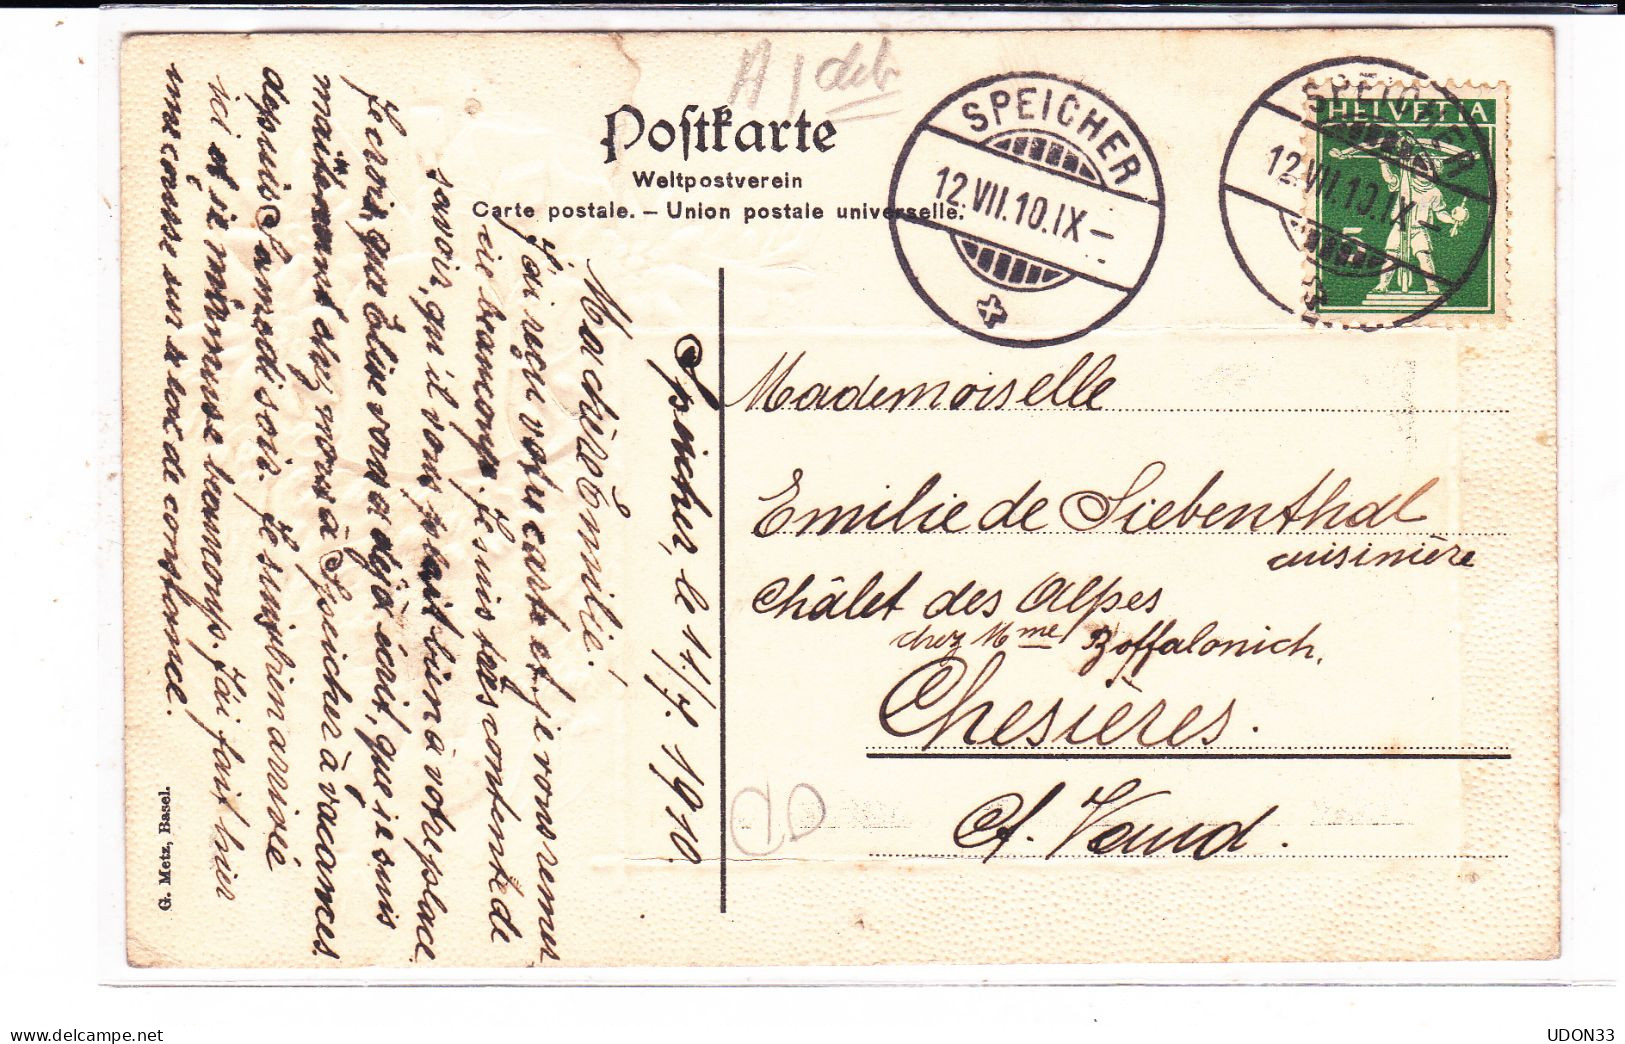 A / deb
Postkarte
Weltpostverein
Carte postale. – Union postale universelle.
SPEICHER
12.VII.10.IX–
SPEICHER
12.VII.10.IX–
HELVETIA
5
Speicher, le 11./7. 1910.
Ma chère Emilie!
J'ai reçu votre carte et je vous remer
cie beaucoup. Je suis très contente de
savoir, qu'il vous plait bien à votre place
Je crois, que Elise vous a déjà écrit, que je suis
maintenant chez nous à Speicher à vacances
depuis Samedi soir. Je suis bien arrivée
ici et je m'amuse beaucoup. J'ai fait hier
une course sur le lac de constance.
Mademoiselle
Emilie de Siebenthal
cuisinière
Châlet des Alpes
chez Mme Zoffalonich.
Chesières.
Ct. Vaud.
G. Metz, Basel.
delcampe.net
UDON33